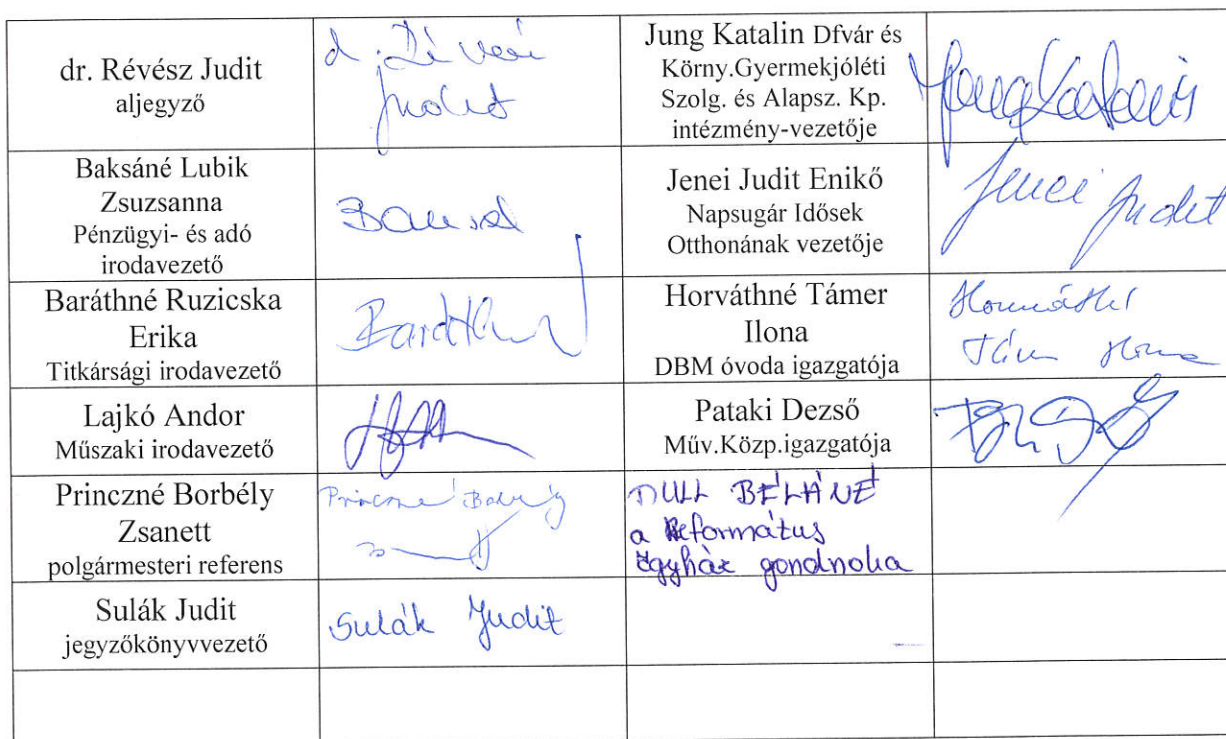 dr. Révész Judit
aljegyző
Judit
Jung Katalin Dfvár és
Körny.Gyermekjóléti
Szolg. és Alapsz. Kp.
intézmény-vezetője
Baksáné Lubik
Zsuzsanna
Pénzügyi- és adó
irodavezető
Jenei Judit Enikő
Napsugár Idősek
Otthonának vezetője
Jenei Judit
Baráthné Ruzicska
Erika
Titkársági irodavezető
Horváthné Támer
Ilona
DBM óvoda igazgatója
Lajkó Andor
Műszaki irodavezető
Pataki Dezső
Műv.Közp.igazgatója
Princzné Borbély
Zsanett
polgármesteri referens
Princzné Borbély
BÉLÁNÉ
a Református
Egyház gondnoka
Sulák Judit
jegyzőkönyvvezető
Sulák Judit